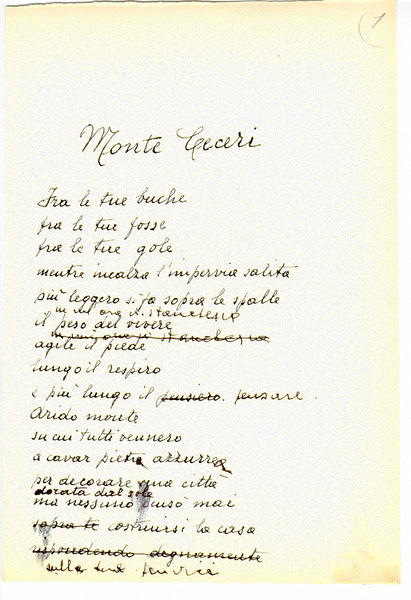 1
Monte Ceceri
Fra le tue buche
fra le tue fosse
fra le tue gole
mentre incalza l'impervia salita
più leggero si fa sopra le spalle
in un'ora di stanchezza
il peso del vivere
agile il piede
lungo il respiro
e più lungo il pensiero. pensare.
Arido monte
su cui tutti vennero
a cavar pietra azzurra
per decorare una città
dorata dal sole
ma nessuno pensò mai
sopra te costruirsi la casa
rispondendo degnamente
sulla tua